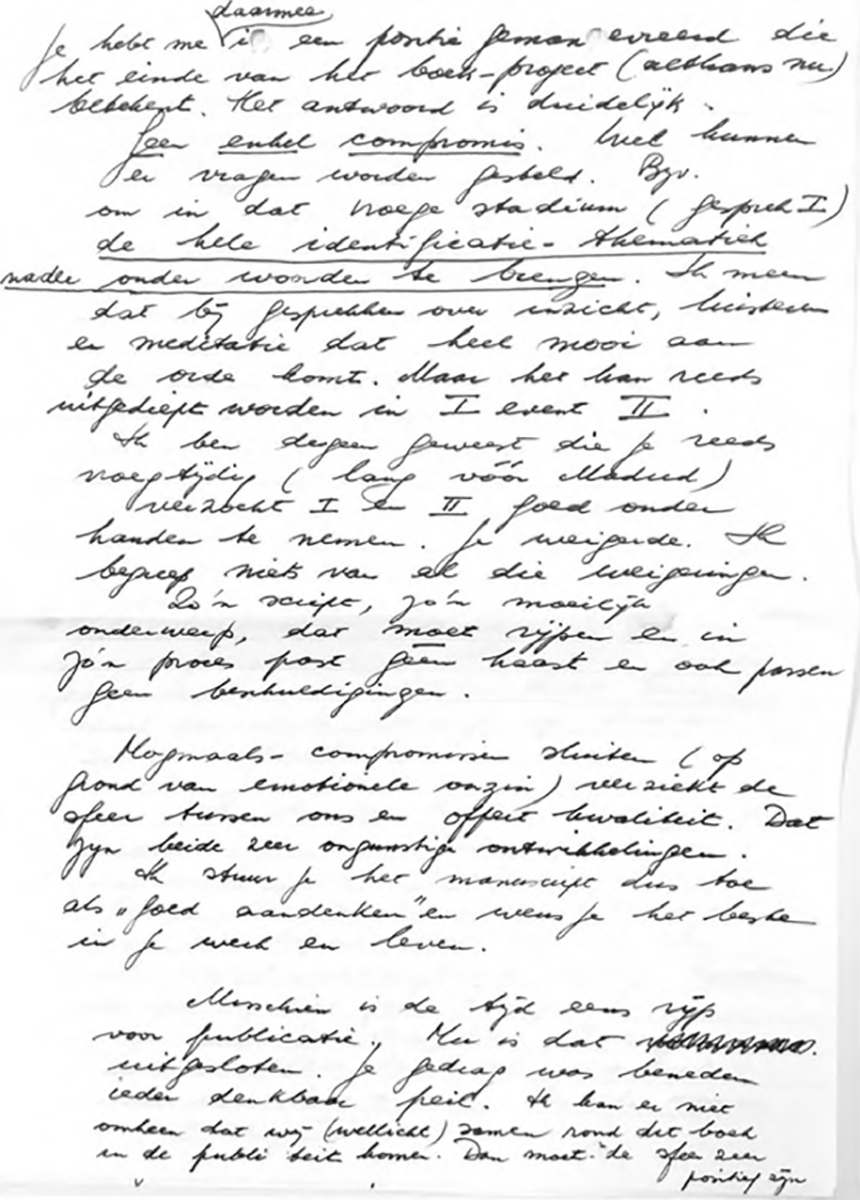 daarmee
Je hebt me in een positie gemanoevreerd die
het einde van het boek-project (althans nu)
betekent. Het antwoord is duidelijk.
Geen enkel compromis. Wel kunnen
er vragen worden gesteld. Bijv.
om in dat vroege stadium (gesprek I)
de hele identificatie-thematiek
nader onder woorden te brengen. Ik meen
dat bij gesprekken over inzicht, luisteren
en meditatie dat heel mooi aan
de orde komt. Maar het kan reeds
uitgediept worden in I event II.
Ik ben degeen geweest die je reeds
vroegtijdig (lang vóór Madrid)
verzocht I en II goed onder
handen te nemen. Je weigerde. Ik
begreep niets van al die weigeringen.
Zo'n script, zo'n moeilijk
onderwerp, dat moet rijpen en in
zo'n proces past géén haast en ook passen
geen beschuldigingen.
Nogmaals - compromissen sluiten (op
grond van emotionele onzin) verziekt de
sfeer tussen ons en offert kwaliteit. Dat
zijn beide zeer ongunstige ontwikkelingen.
Ik stuur je het manuscript dus toe
als „goed aandenken" en wens je het beste
in je werk en leven.
Misschien is de tijd eens rijp
voor publicatie. Nu is dat
uitgesloten. Je gedrag was beneden
ieder denkbaar peil. Ik kan er niet
omheen dat wij (wellicht) samen rond dit boek
in de publiciteit komen. Dan moet de sfeer zeer
positief zijn